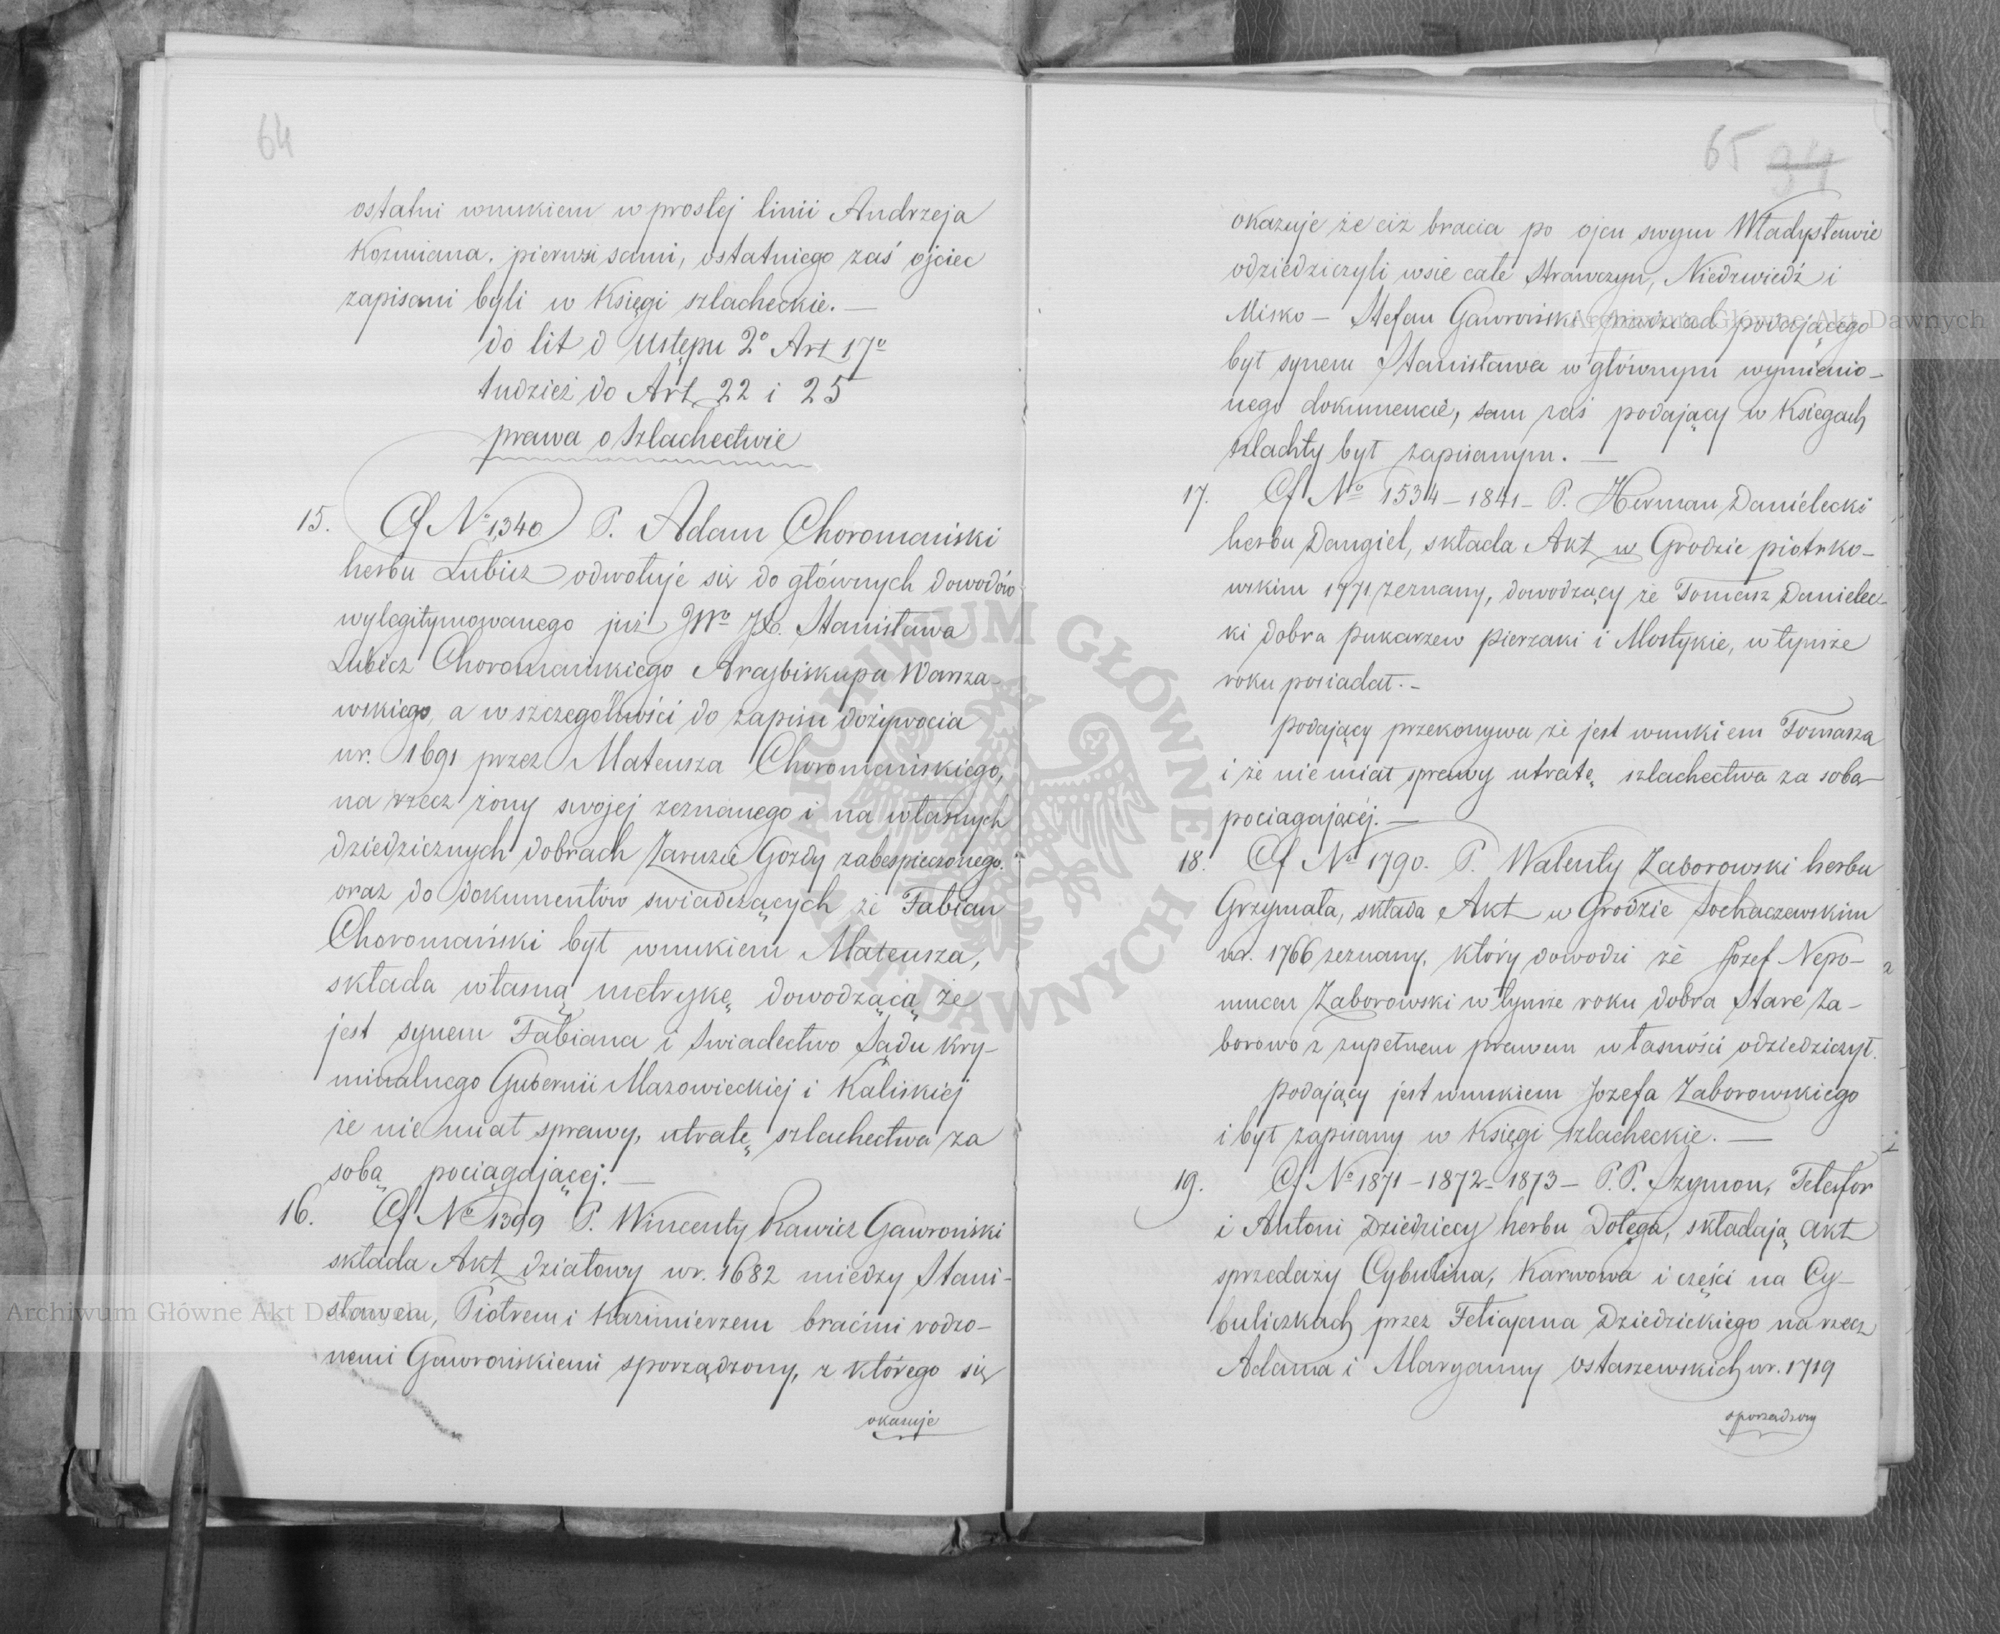 64
ostatni wnukiem w prostej linii Andrzeja
Kozmiana, pierwsi sami, ostatniego zaś ojciec
zapisani byli w Księgi szlacheckie. —
do lit d Ustępu 2º Art 17º
tudzież do Art. 22 i 25
prawa o szlachectwie
15. Cf Nº 1,340 P. Adam Choromański
herbu Lubicz odwołuje się do głównych dowodów
wylegitymowanego już JWº JX. Stanisława
Lubicz Choromańskiego Arcybiskupa Warsza-
wskiego, a w szczególności do zapisu dożywocia
wr. 1691 przez Mateusza Choromańskiego,
na rzecz żony swojej zeznanego i na własnych
dziedzicznych dobrach Zaruzie Gozdy zabespieczonego,
oraz do dokumentów swiadczących że Fabian
Choromański był wnukiem Mateusza,
składa własną metrykę dowodzącą że
jest synem Fabiana i Swiadectwo Sądu Kry-
minalnego Gubernii Mazowieckiej i Kaliskiej
że nie miał sprawy, utratę szlachectwa za
sobą pociągającej. —
16. Cf Nº 1399 P. Wincenty Rawicz Gawroński
składa Akt działowy wr. 1682 miedzy Stani-
sławem, Piotrem i Kazimierzem braćmi rodzo-
nemi Gawrońskiemi sporządzony, z którego się
okazuje
65 34
okazuje że ciż bracia po ojcu swym Władysławie
odziedziczyli wsie całe Strawczyn, Niedzwiedź i
Misko — Stefan Gawroński pradziad podającego
był synem Stanisława w głównym wymienio-
nego dokumencie, sam zaś podający w Ksiegach
szlachty był zapisanym. —
17. Cf Nº 1534 – 1841 – P. Herman Danielecki
herbu Dangiel, składa Akt w Grodzie piotrko-
wskim 1771 zeznany, dowodzący że Tomasz Danielec-
ki dobra Pukarzew Pierzaki i Mostykie, w tymże
roku posiadał. –
podający przekonywa że jest wnukiem Tomasza
i że nie miał sprawy utratę szlachectwa za soba
pociagającéj. —
18. Cf Nº 1790. P. Walenty Zaborowski herbu
Grzymała, składa Akt w Grodzie Sochaczewskim
wr. 1766 zeznany, który dowodzi że Jozef Nepo-
mucen Zaborowski w tymże roku dobra Stare Za-
borowo z zupełnem prawem własności odziedziczył.
podający jest wnukiem Jozefa Zaborowskiego
i był zapisany w Księgi szlacheckie. —
19. Cf Nº 1871 – 1872 – 1873 – P.P. Szymon, Telesfor
i Antoni Dziedziccy herbu Dołęga, składają akt
sprzedaży Cybulina, Karwowa i części na Cy-
buliczkach przez Felicjana Dziedzickiego na rzecz
Adama i Maryanny Ostaszewskich wr. 1719
sporzadzony
Archiwum Główne Akt Dawnych
Archiwum Główne Akt Dawnych
ARCHIWUM GŁÓWNE AKT DAWNYCH